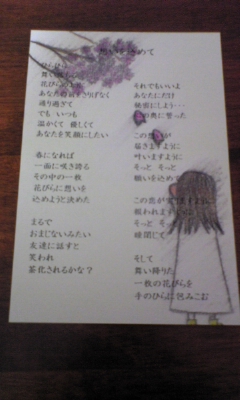 めて
花びらの
あなたの
通り過ぎて
でも いつも
温かくて 優しくて
あなたを笑顔にしたい
春になれば
一面に咲き誇る
その中の一枚
花びらに想いを
込めようと決めた
まるで
おまじないみたい
友達に話すと
笑われ
茶化されるかな?
それでもいいよ
あなたにだけ
秘密にしよう・・・
の奥に誓った
この想いが
届きますように
叶いますように
そっと そっと
願いを込めて
この恋が
祝われますように
そっと
瞳閉じて
そして
舞い降りた
一枚の花びらを
手のひらに包みこむ